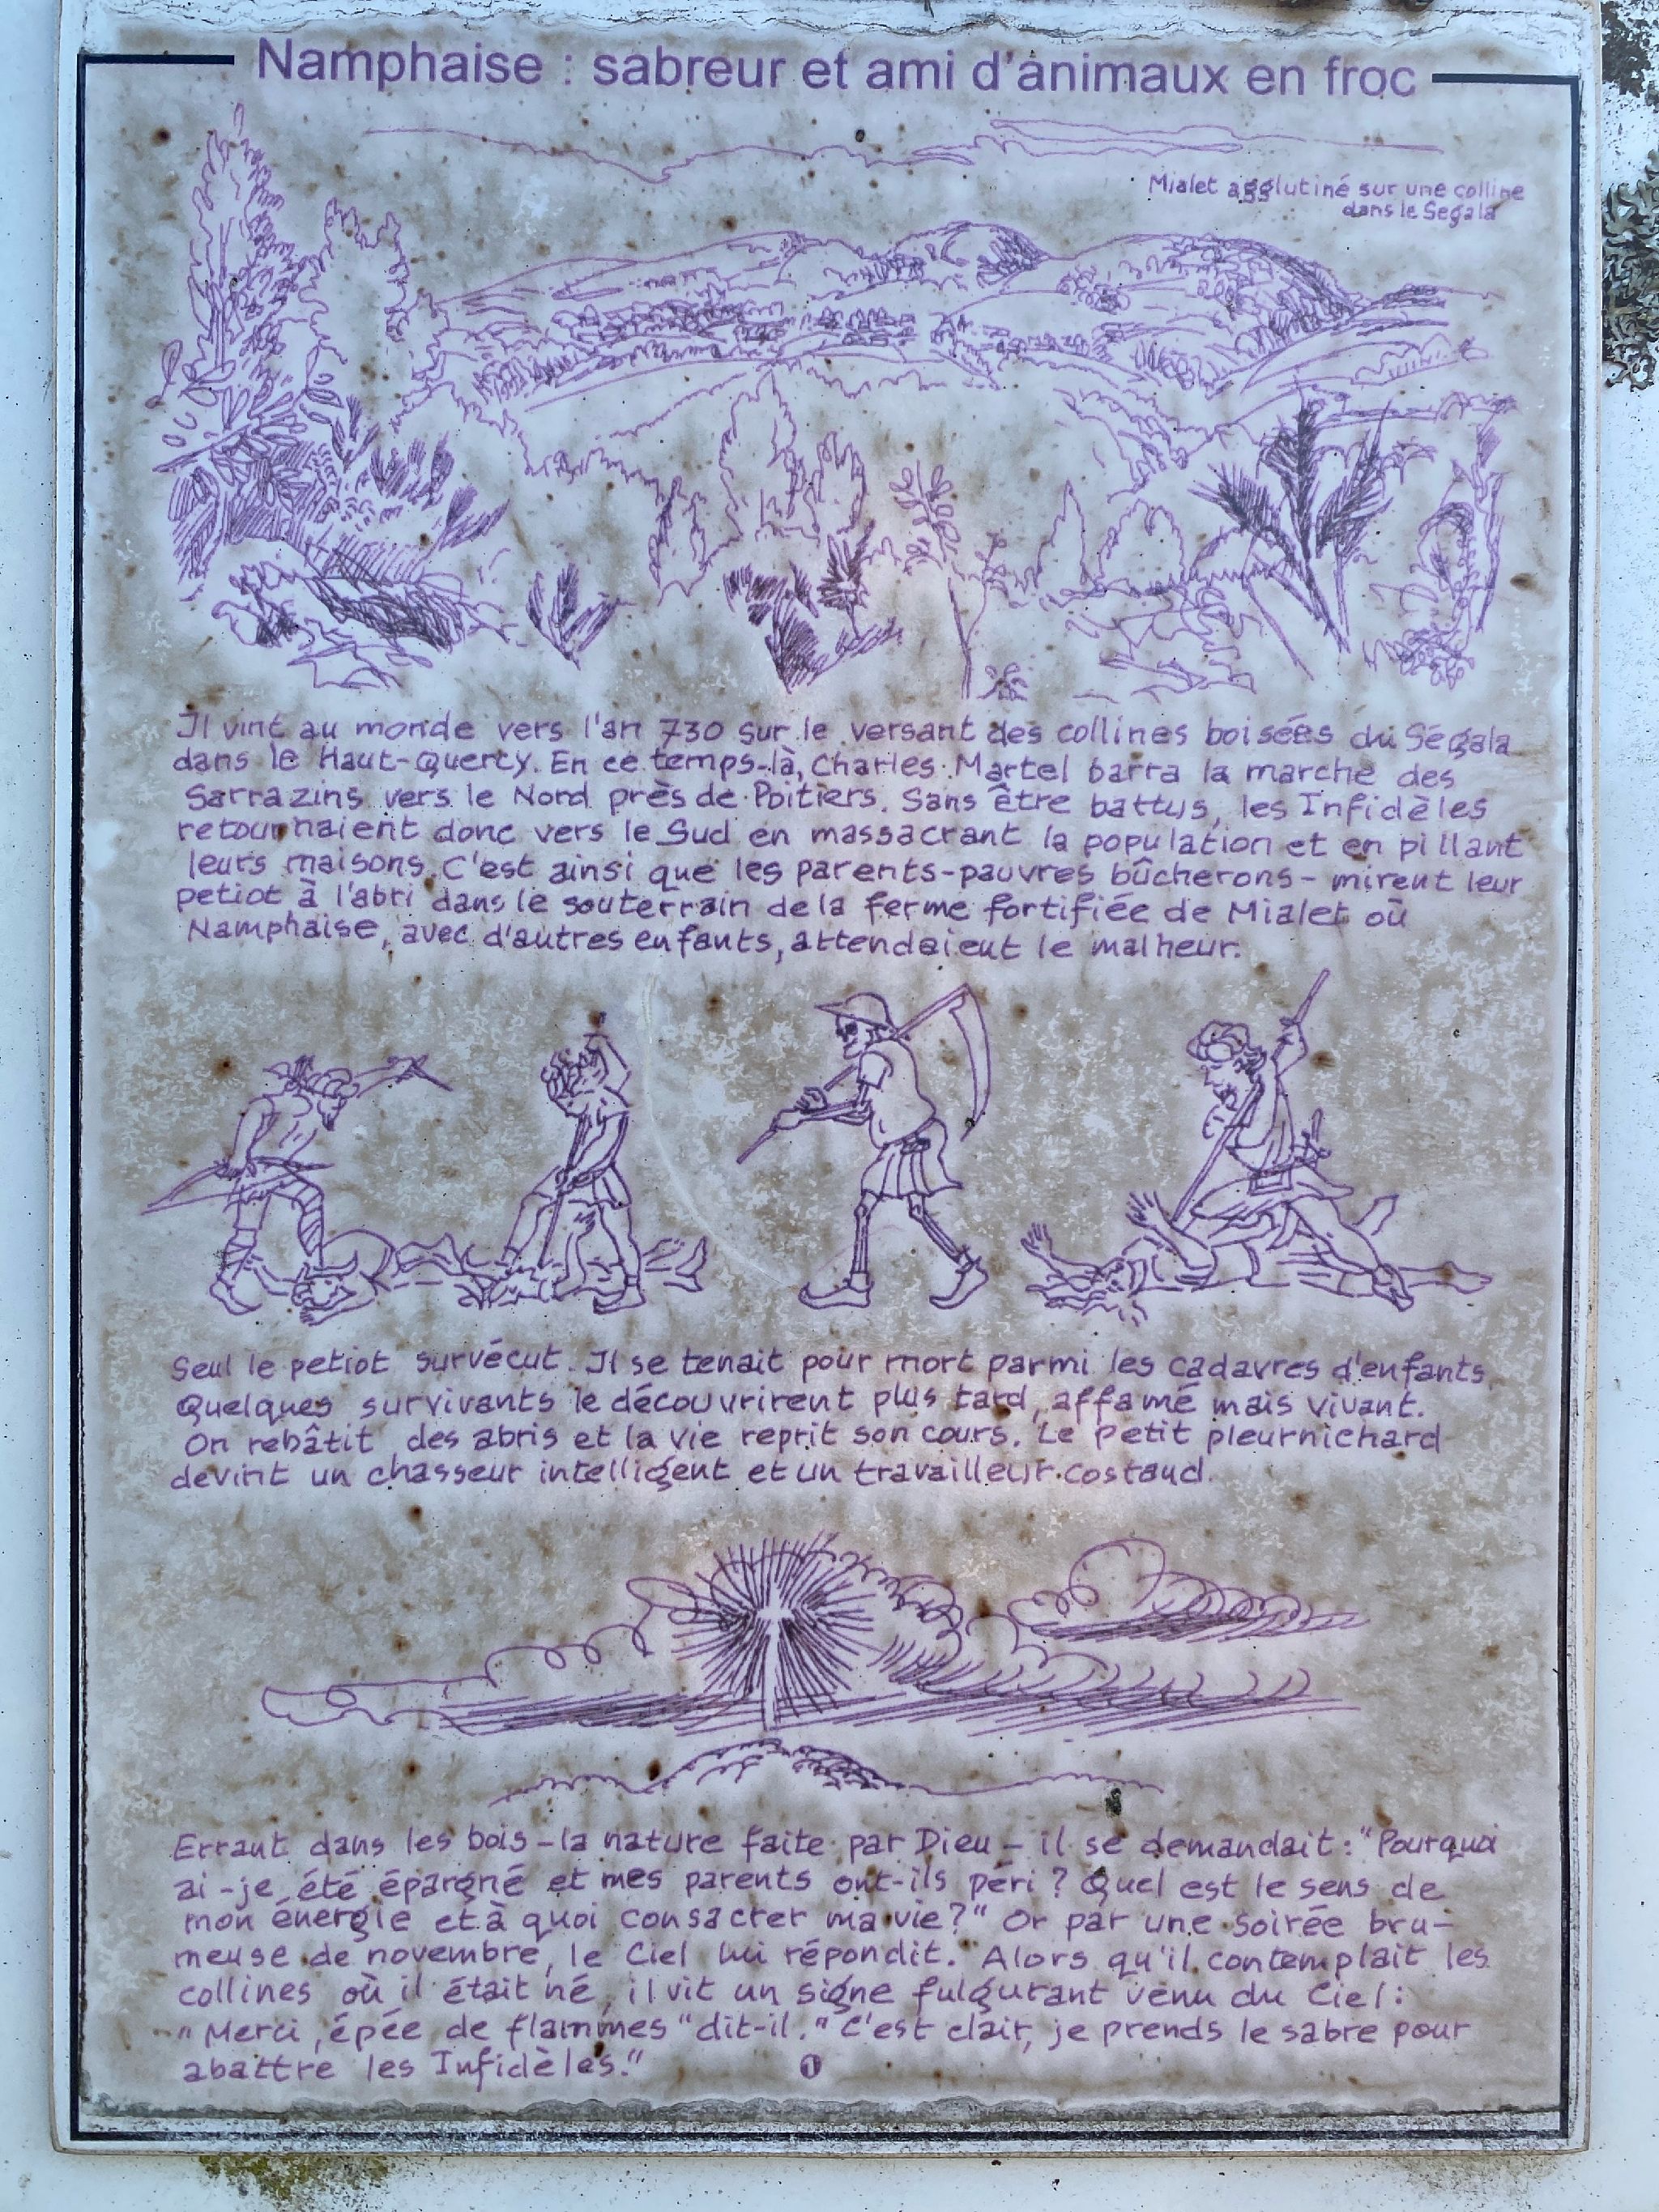 Namphaise : sabreur et ami d'animaux en froc
Mialet agglutiné sur une colline
dans le Segala
Il vint au monde vers l'an 730 sur le versant des collines boisées du Ségala
dans le Haut-Quercy. En ce temps-là, Charles Martel barra la marche des
Sarrazins vers le Nord près de Poitiers. Sans être battus, les Infidèles
retournaient donc vers le Sud en massacrant la population et en pillant
leurs maisons. C'est ainsi que les parents-pauvres bûcherons- mirent leur
petiot à l'abri dans le souterrain de la ferme fortifiée de Mialet où
Namphaise, avec d'autres enfants, attendaient le malheur.
Seul le petiot survécut. Il se tenait pour mort parmi les cadavres d'enfants.
Quelques survivants le découvrirent plus tard, affamé mais vivant.
On rebâtit des abris et la vie reprit son cours. Le petit pleurnichard
devint un chasseur intelligent et un travailleur costaud.
Errant dans les bois - la nature faite par Dieu - il se demandait : "Pourquoi
ai-je été épargné et mes parents ont-ils péri ? Quel est le sens de
mon énergie et à quoi consacrer ma vie?" Or par une soirée bru-
meuse de novembre, le Ciel lui répondit. Alors qu'il contemplait les
collines où il était né, il vit un signe fulgurant venu du Ciel :
"Merci, épée de flammes" dit-il. "C'est clair, je prends le sabre pour
abattre les Infidèles."
1